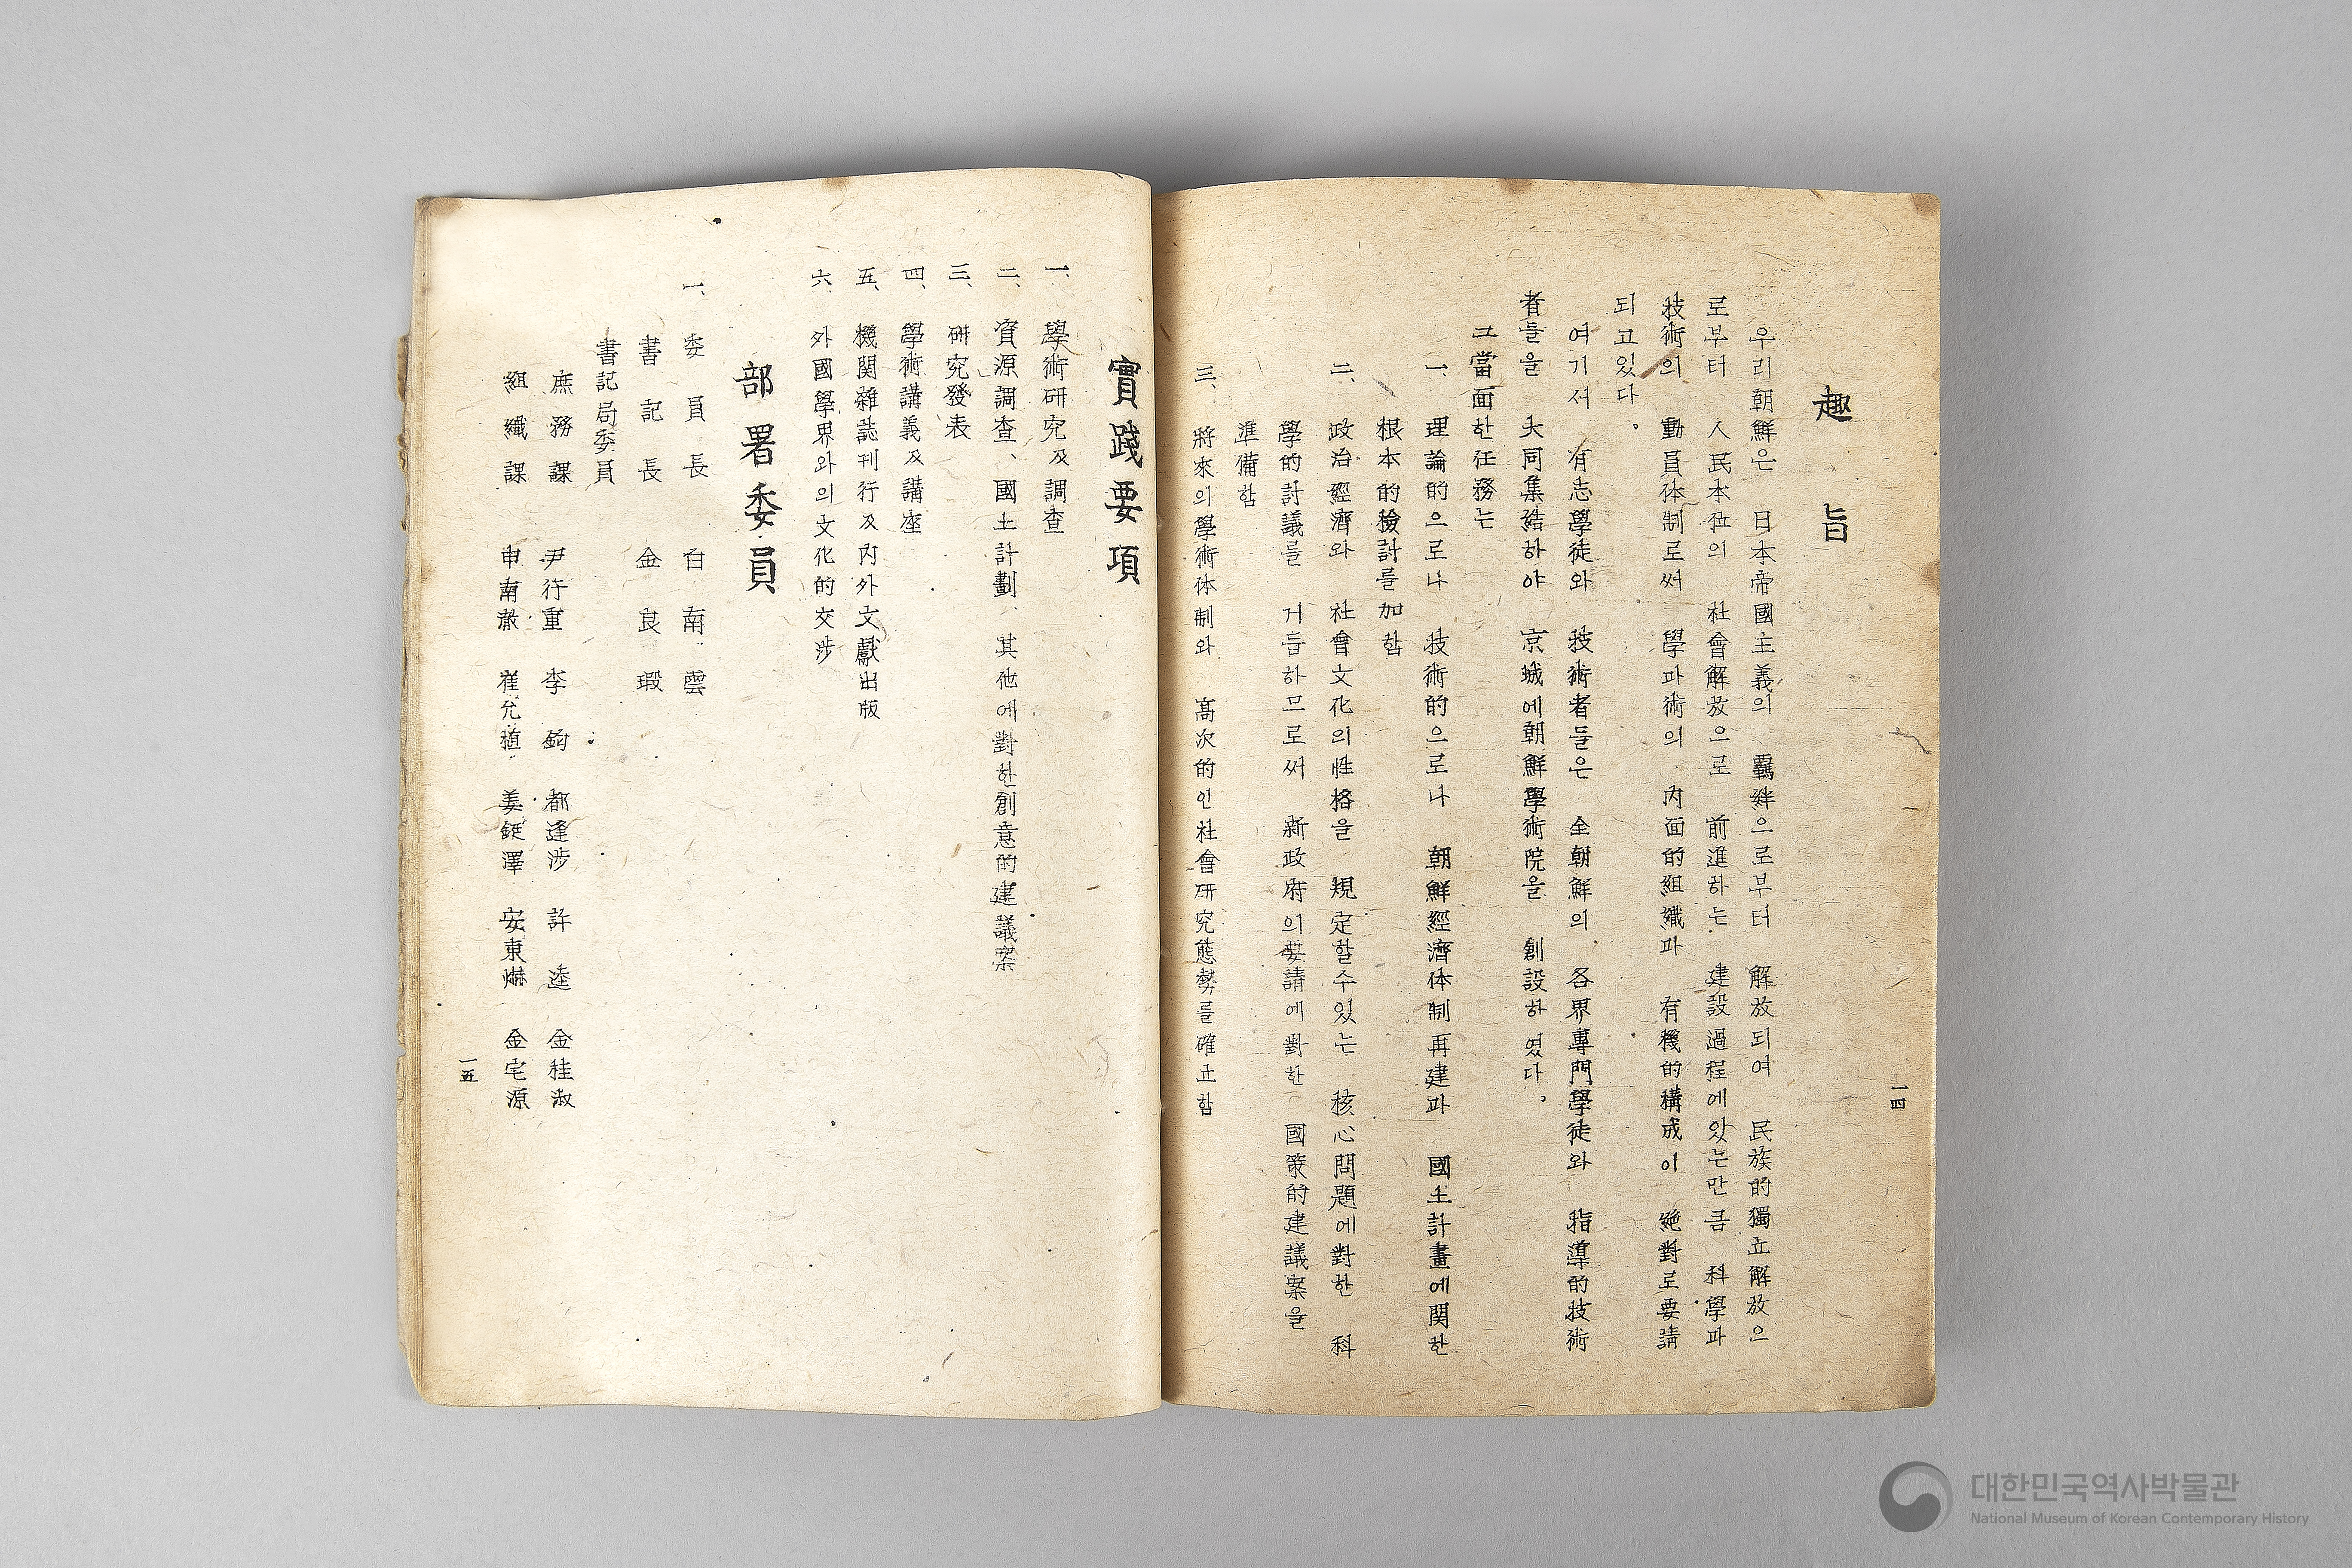 趣旨
우리朝鮮은 日本帝國主義의 羈絆으로부터 解放되여 民族的獨立解放으
로부터 人民本位의 社會解放으로 前進하는 建設過程에있는만큼 科學과
技術의 動員体制로써 學과術의 內面的組織과 有機的構成이 絶對로要請
되고있다。
여기서 有志學徒와 技術者들은 全朝鮮의 各界專門學徒와 指導的技術
者들을 大同集結하야 京城에朝鮮學術院을 創設하였다。
그當面한任務는
一、理論的으로나 技術的으로나 朝鮮經濟体制再建과 國土計畫에関한
根本的檢討를加함
二、政治經濟와 社會文化의性格을 規定할수있는 核心問題에對한 科
學的討議를 거듭하므로써 新政府의要請에對한 國策的建議案을
準備함
三、將來의學術体制와 高次的인社會硏究態勢를確立함
一四
實踐要項
一、學術硏究及調查
二、資源調查、國土計劃、其他에對한創意的建議案
三、硏究發表
四、學術講義及講座
五、機関雜誌刊行及內外文獻出版
六、外國學界와의文化的交涉
部署委員
一、委員長 白南雲
書記長 金良瑕
書記局委員
庶務課 尹行重 李鈞 都逢涉 許逵 金桂淑
組織課 申南澈 崔允植 姜鋌澤 安東爀 金宅源
一五
대한민국역사박물관
National Museum of Korean Contemporary History